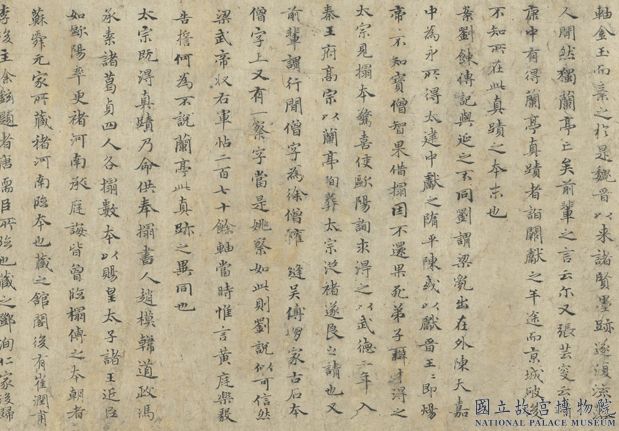 軸金玉而素之於是魏晉以來諸賢墨跡遂復流
人間然獨蘭亭亡矣前輩之言云尔又張芸叟云
唐中有得蘭亭真蹟者詣闕獻之半途而京城破
不知所在此真蹟之本末也
案劉餗傳記與延之言同劉謂梁亂出在外陳天嘉
中為永所得太建中獻之隋平陳或以獻晉王王即煬
帝不知寶僧智果借搨因不還果死弟子辯才得之
太宗見搨本驚喜使歐陽詢求得之以武德二年入
秦王府高宗以蘭亭殉葬太宗從褚遂良之請也又
前輩謂行間僧字為徐僧權縫吳傅朋家古石本
僧字上又有一察字當是姚察如此則劉說似可信然
梁武帝收右軍帖二百七十餘軸當時惟言黃庭樂毅
告擔何為不說蘭亭此真跡之異同也
太宗既得真蹟乃命供奉搨書人趙模韓道政馮
承素諸葛貞四人各搨數本以賜皇太子諸王近臣
如歐陽率更褚河南永庭誨皆曾臨搨傳之本朝者
蘇舜元家所藏褚河南臨本也藏之館閣後有崔潤甫
李後主金題者唐儒臣所臨也藏之鄧洵仁家後歸
國立故宮博物院
NATIONAL PALACE MUSEUM